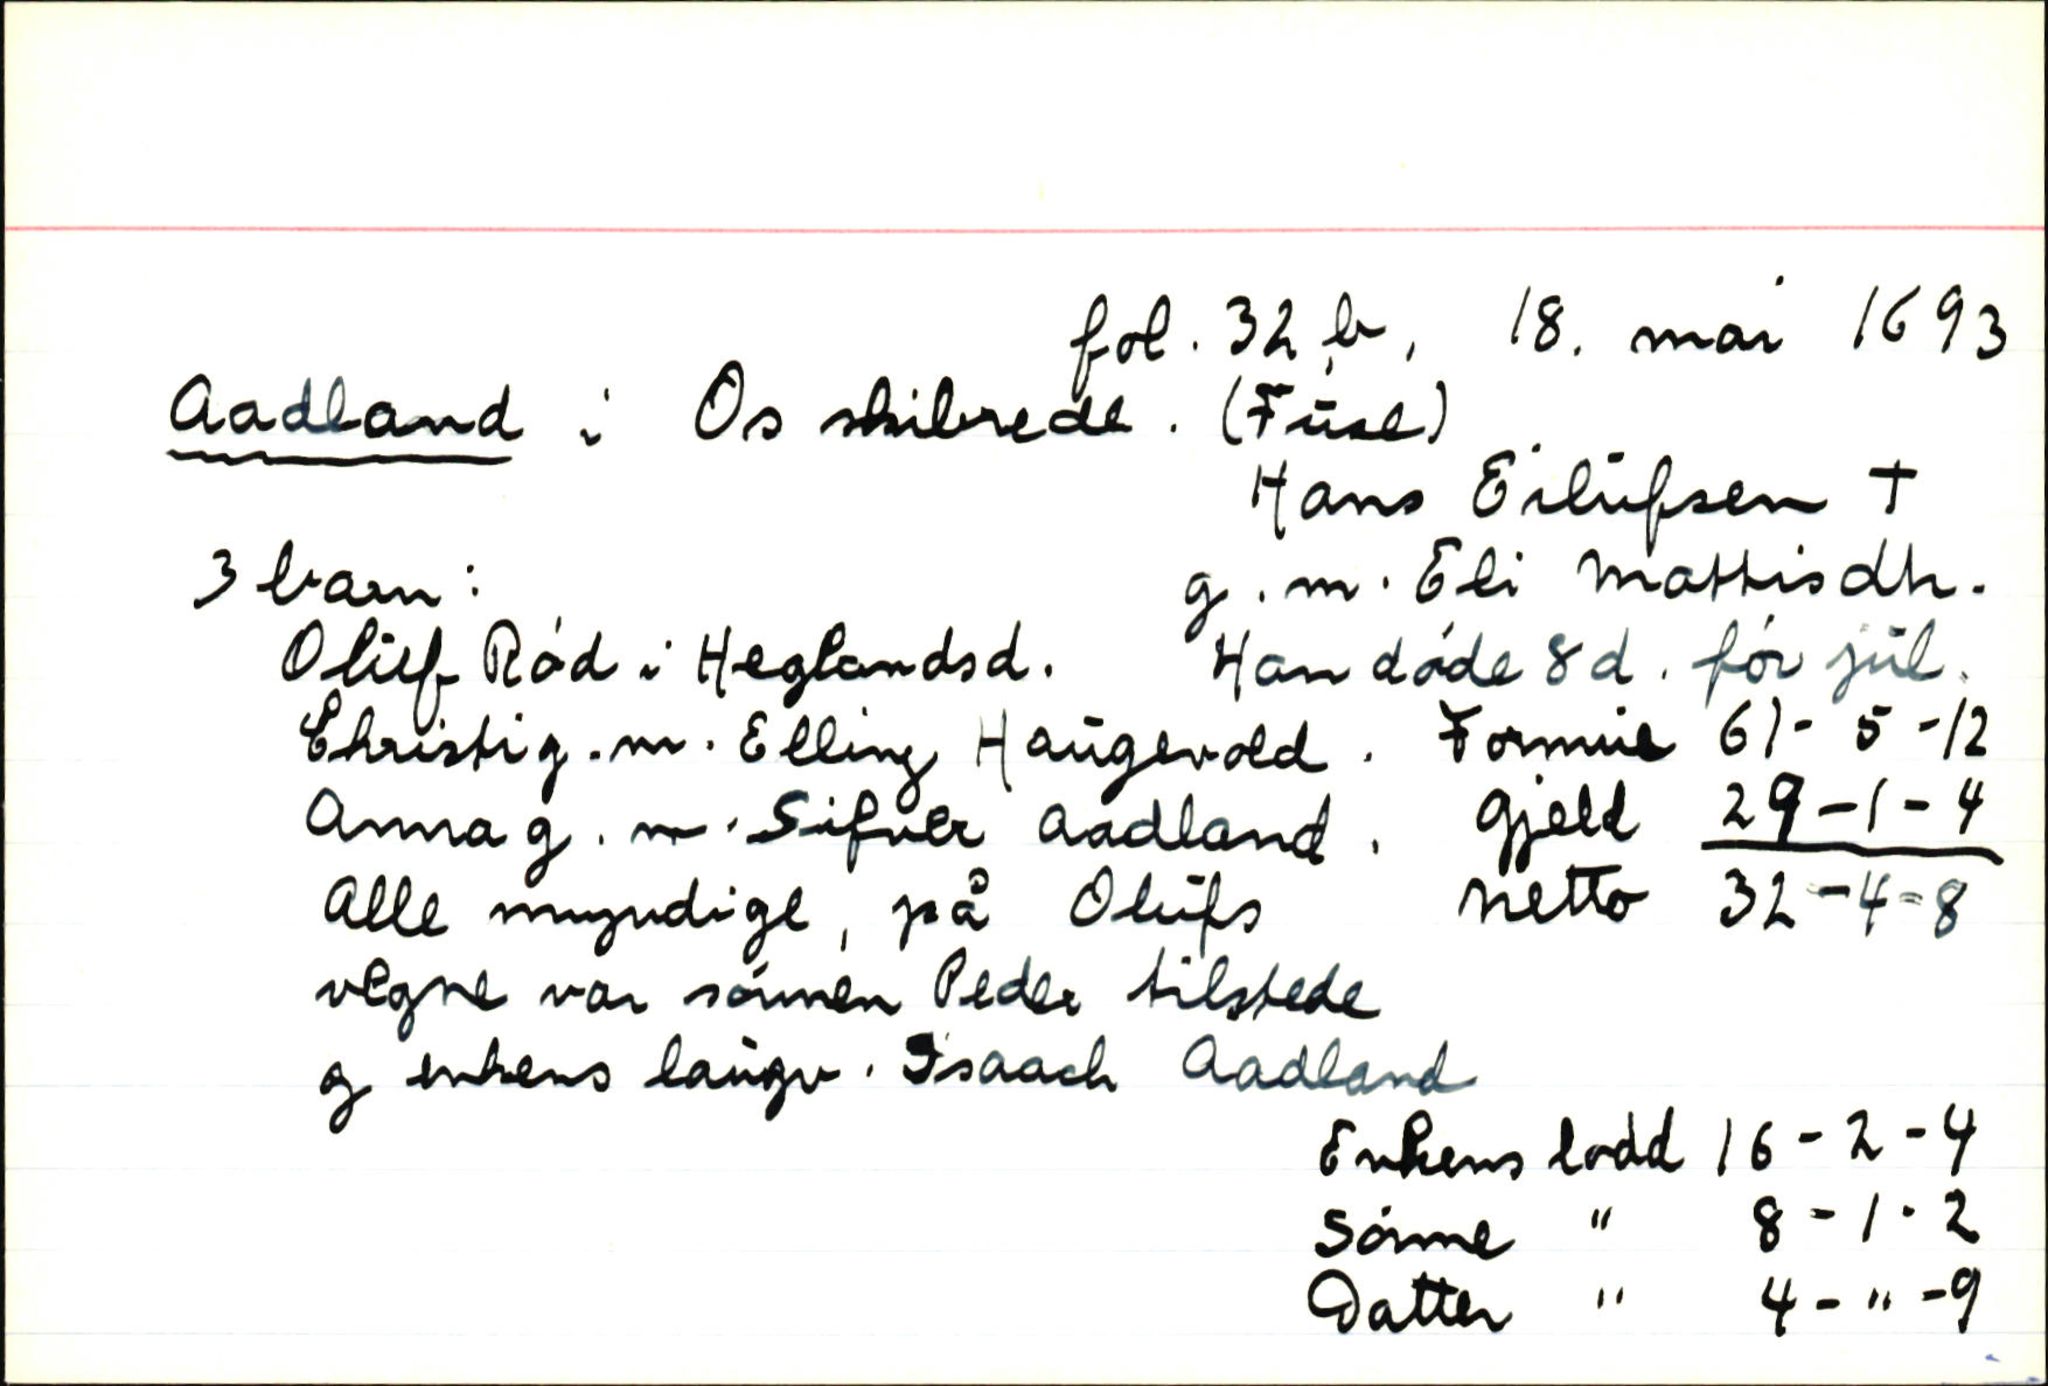 fol. 32 b, 18. mai 1693
Aadland i Os skibrede. (Fuse)
Hans Eilufsen †
3 barn: g.m. Eli Mattisdtr.
Oluf Rød i Heglandsd. Han døde 8 d. før jul.
Christi g.m. Elling Haugevold. Formue 61 - 5 - 12
Anna g.m. Sifver Aadland. Gjeld 29 - 1 - 4
Alle myndige, på Olufs Netto 32 - 4 - 8
vegne var sønnen Peder tilstede
og enkens laugv. Isaach Aadland
Enkens lodd 16 - 2 - 4
Sønne " 8 - 1 - 2
Datter " 4 - " - 9